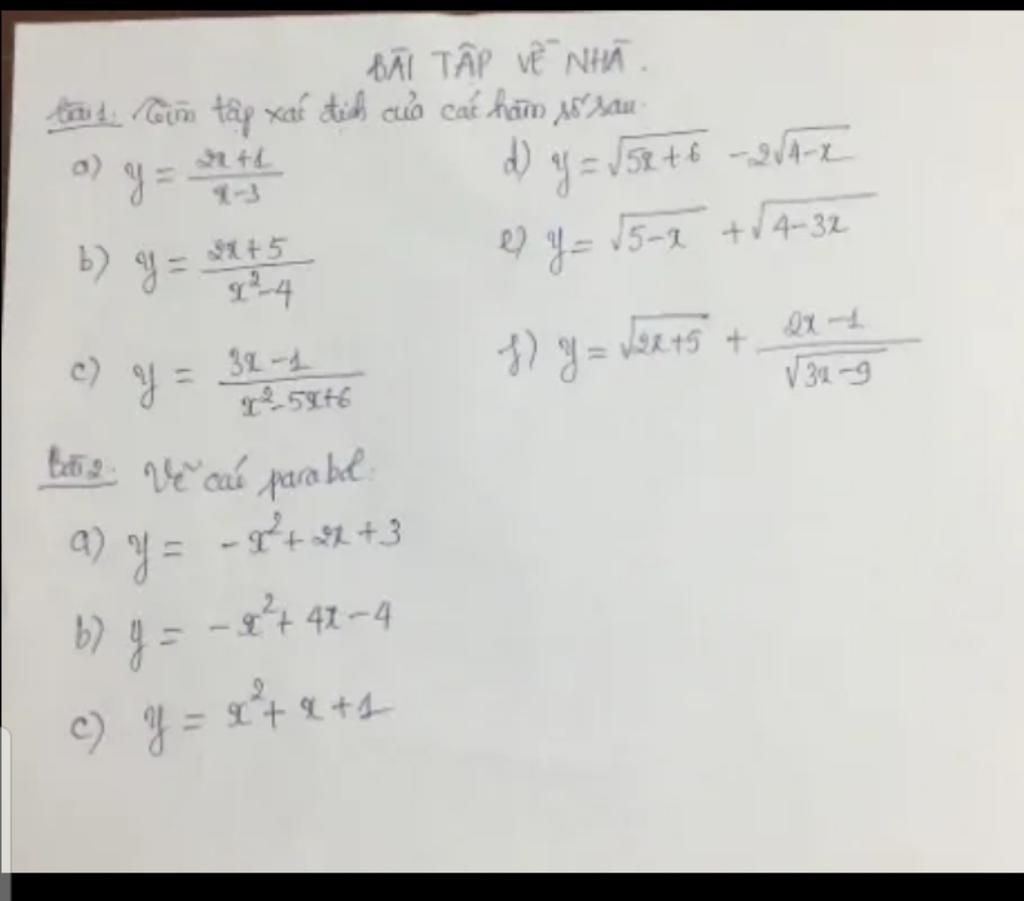 BÀI TẬP VỀ NHÀ.
Bài 1: Tìm tập xác định của các hàm số sau.
a) y = \frac{2x+1}{x-3}
b) y = \frac{2x+5}{x^2-4}
c) y = \frac{3x-1}{x^2-5x+6}
d) y = \sqrt{5x+6} - 2\sqrt{4-x}
e) y = \sqrt{5-x} + \sqrt{4-3x}
f) y = \sqrt{2x+5} + \frac{2x-1}{\sqrt{3x-9}}
Bài 2: Vẽ các parabol.
a) y = -x^2 + 2x + 3
b) y = -x^2 + 4x - 4
c) y = x^2 + x + 1